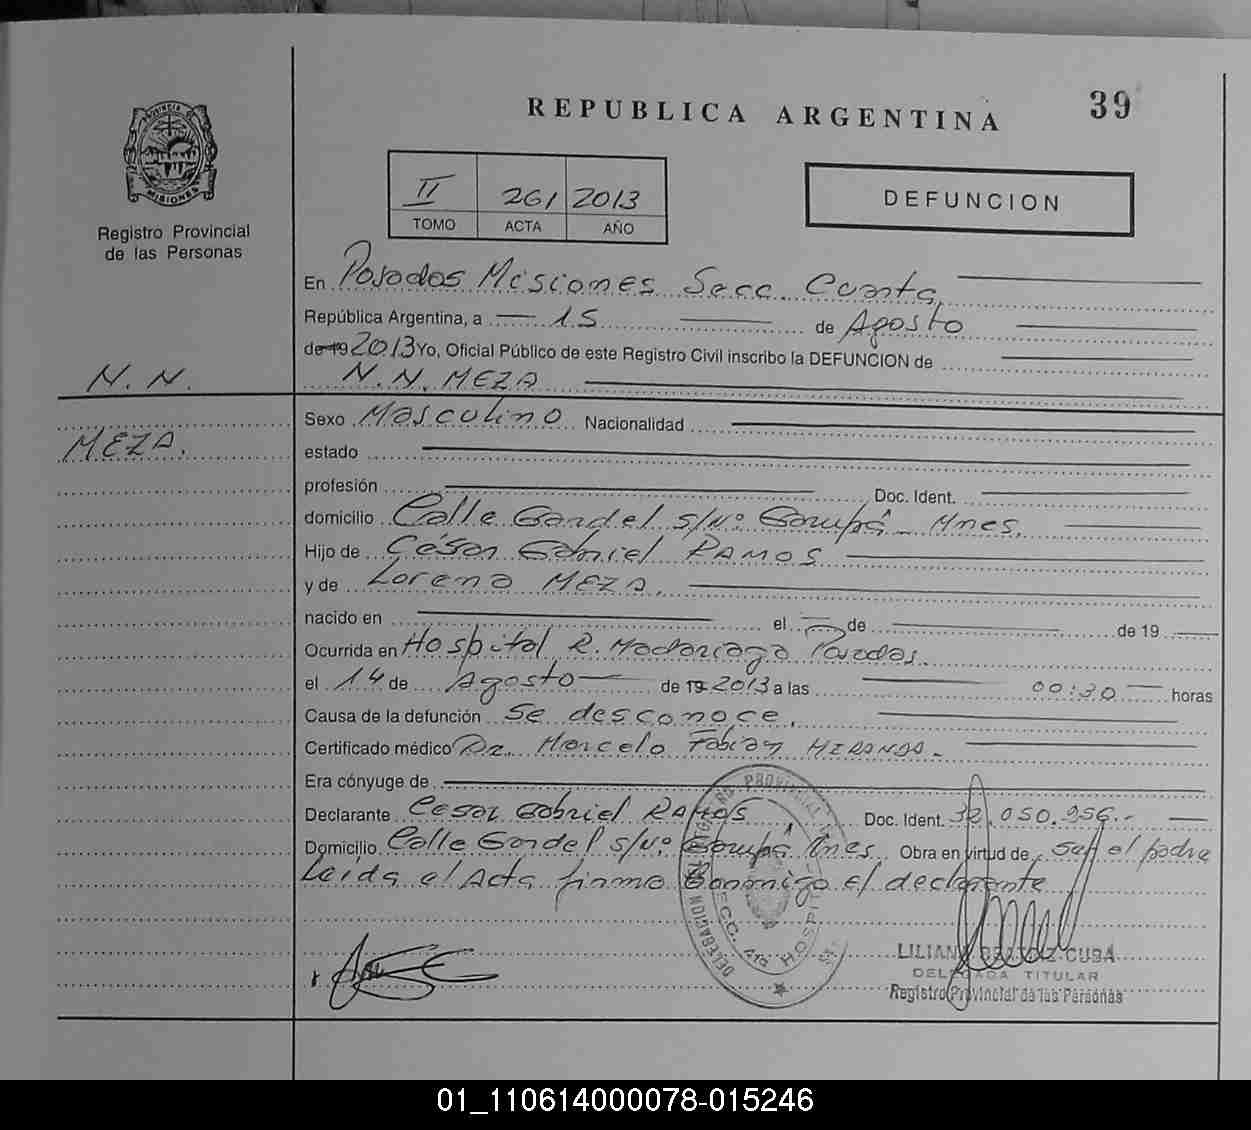 39
REPUBLICA ARGENTINA
PROVINCIA DE
MISIONES
Registro Provincial
de las Personas
II 261 2013
TOMO ACTA AÑO
DEFUNCION
En Posadas Misiones Secc. Cuarta,
República Argentina, a 15 de Agosto
de 19 2013 Yo, Oficial Público de este Registro Civil inscribo la DEFUNCION de
N. N. N.N. MEZA
Sexo Masculino Nacionalidad
MEZA.
estado
profesión Doc. Ident.
domicilio Calle Gardel s/Nº Garupá - Mnes.
Hijo de César Gabriel RAMOS
y de Lorena MEZA.
nacido en el de de 19
Ocurrida en Hospital R. Madariaga Posadas.
el 14 de Agosto de 19 2013 a las 00:30 horas
Causa de la defunción Se desconoce.
Certificado médico Dr. Marcelo Fabian MIRANDA.
Era cónyuge de
Declarante Cesar Gabriel RAMOS Doc. Ident. 32.050.956.-
Domicilio Calle Gardel s/Nº Garupá Mnes. Obra en virtud de ser el padre
Leida el Acta firma conmigo el declarante
DELEGACION
HOSPITAL
LILIANA BEATRIZ CUBA
DELEGADA TITULAR
Registro Provincial de las Personas
01_110614000078-015246